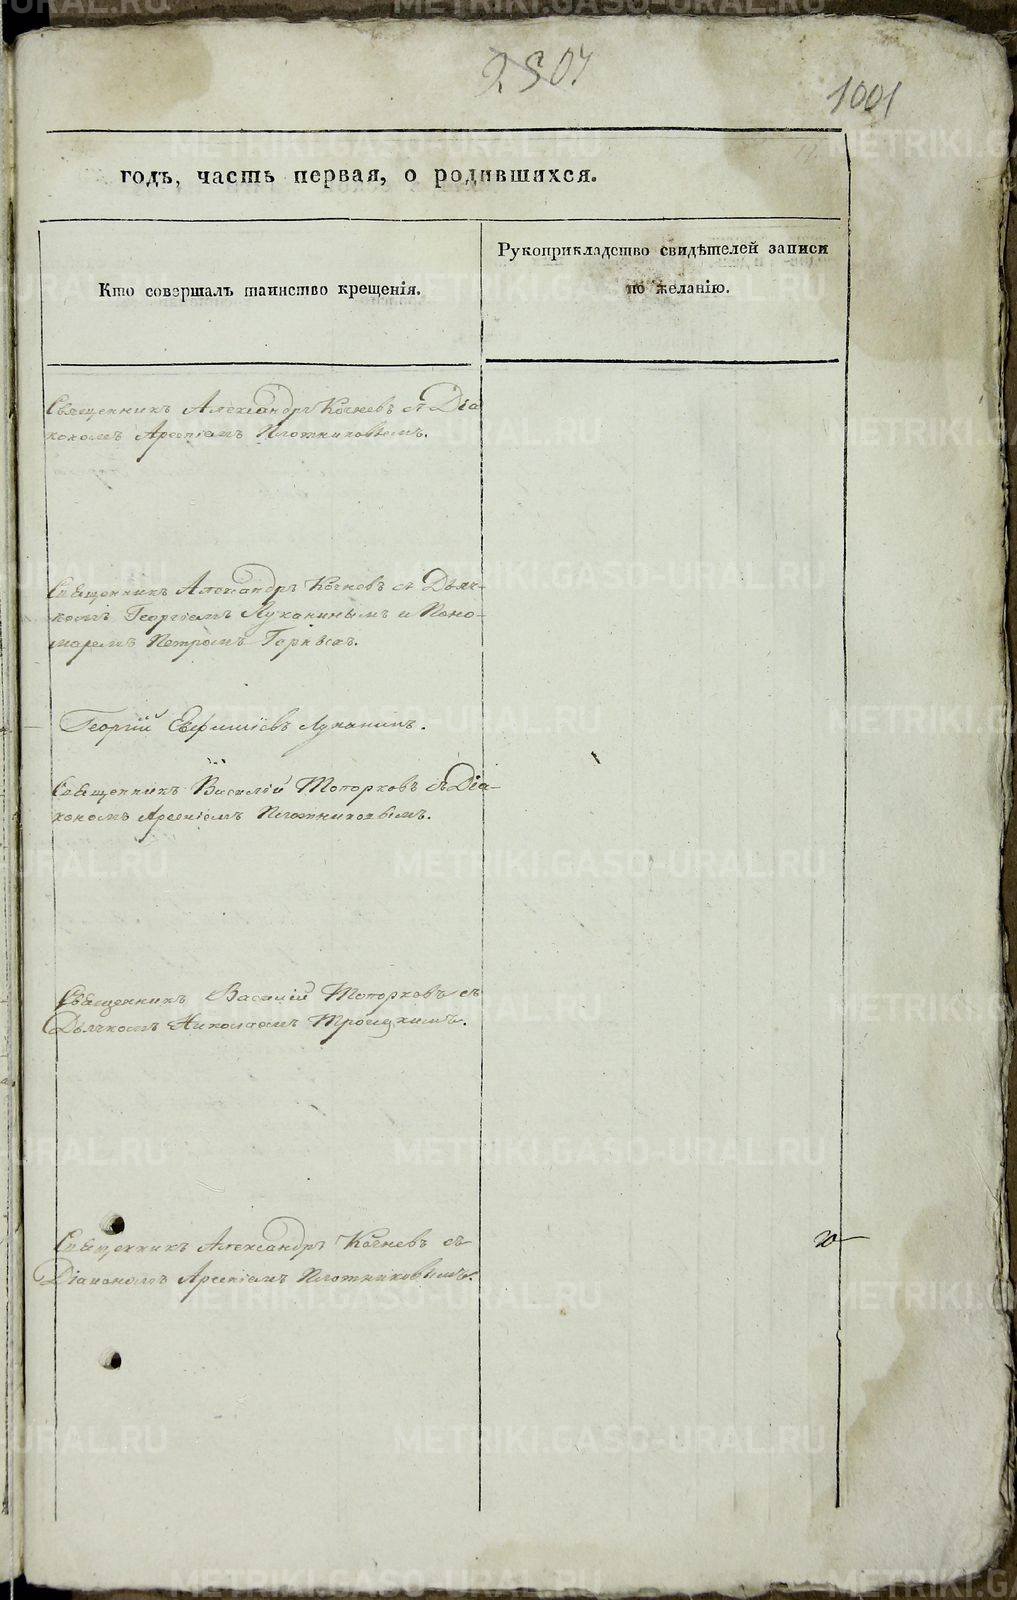 2507
1001
годъ, часть первая, о родившихся.
Кто совершалъ таинство крещенія.
Рукоприкладство свидѣтелей записи
по желанію.
Священникъ Александръ Кочневъ съ Діа
кономъ Арсеніемъ Плотниковымъ.
Священникъ Александръ Кочневъ съ Дьяч-
комъ Георгіемъ Луканинымъ и Поно-
маремъ Петромъ
Георгій Луканинъ.
Священникъ Василій Топорковъ съ Діа-
кономъ Арсеніемъ Плотниковымъ.
Священникъ Василій Топорковъ съ
Дьячкомъ Николаемъ Троицкимъ.
Священникъ Александръ Кочневъ съ
Діакономъ Арсеніемъ Плотниковымъ.
METRIKI.GASO-URAL.RU